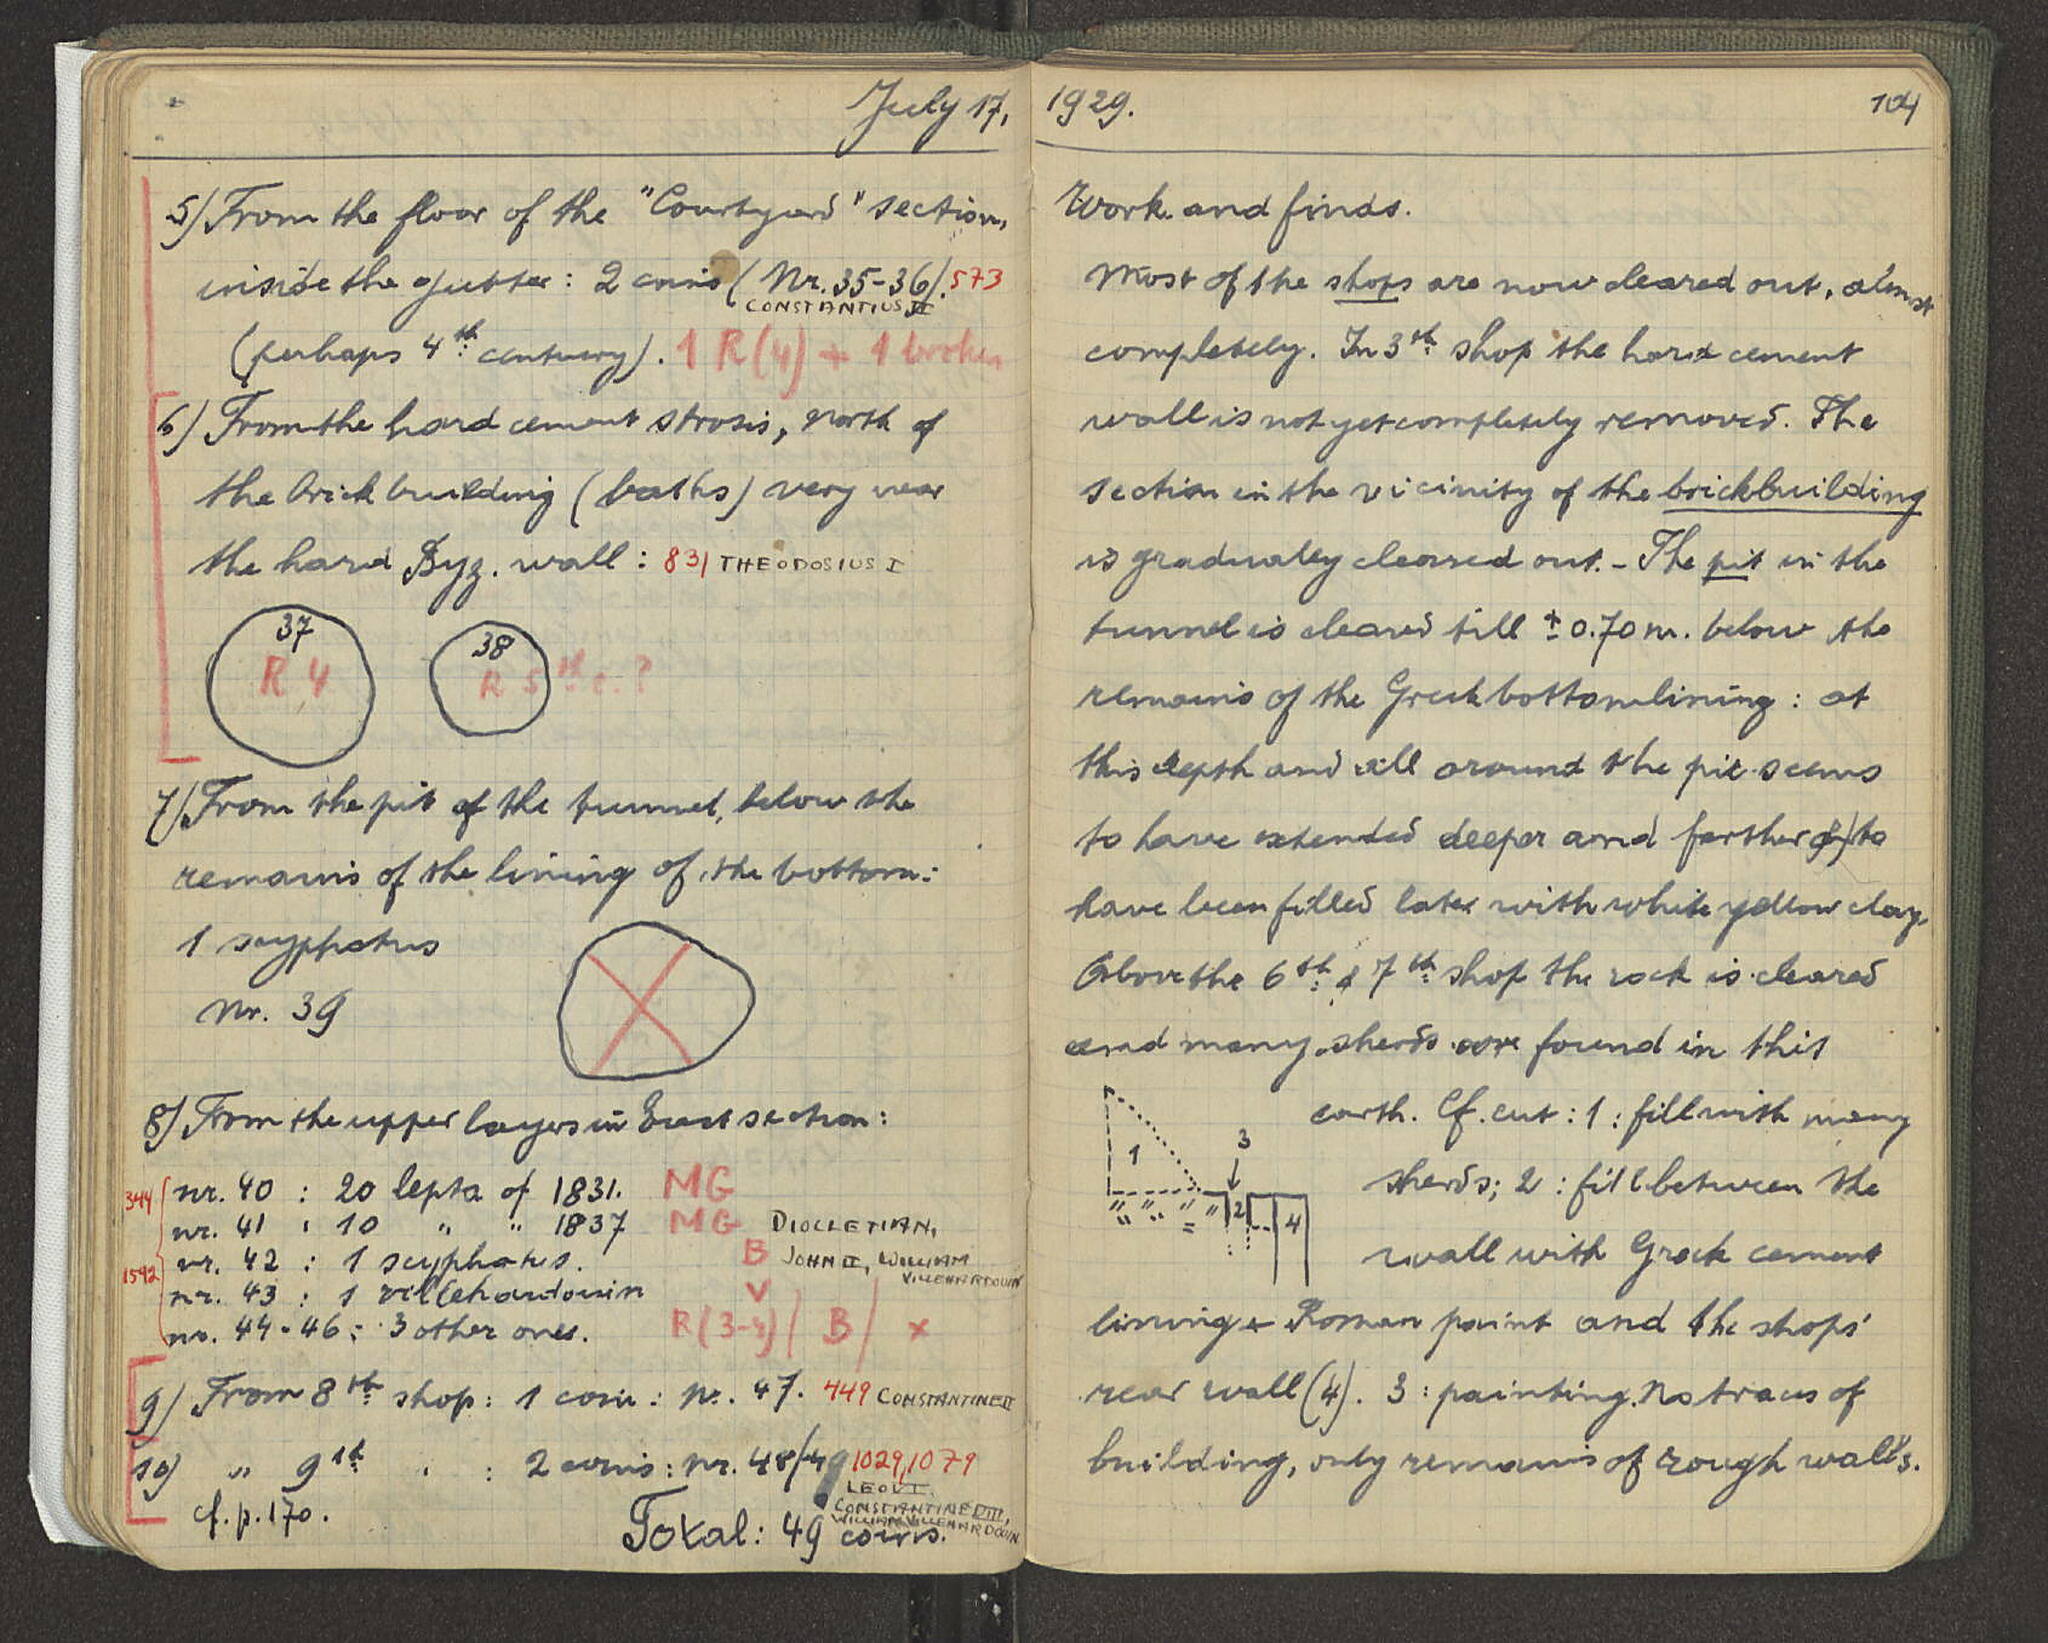 July 17,
5) From the floor of the "Courtyard" section,
inside the gutter: 2 coins (Nr. 35-36). 573
CONSTANTIUS II
(perhaps 4th century). 1 R(4) + 1 broken
6) From the hard cement strosis, north of
the brick building (baths) very near
the hard Byz. wall: 831 THEODOSIUS I
37
R 4
38
R 5th c.?
7) From the pit of the tunnel, below the
remains of the lining of the bottom:
1 scyphatus
Nr. 39
8) From the upper layers in East section:
344 nr. 40 : 20 lepta of 1831. MG
nr. 41 : 10 " " 1837 MG DIOCLETIAN,
1592 nr. 42 : 1 scyphatus. B JOHN II, WILLIAM
VILLEHARDOUIN
nr. 43 : 1 villehardouin V
nr. 44-46 : 3 other ones. R(3-4) / B / x
9) From 8th shop: 1 coin: nr. 47. 449 CONSTANTINE II
10) " 9th " : 2 coins: nr. 48/49 1029, 1079
LEO VI
CONSTANTINE VIII,
WILLIAM VILLEHARDOUIN
cf. p. 170.
Total: 49 coins.
1929. 104
Work and finds.
Most of the shops are now cleared out, almost
completely. In 3th shop the hard cement
wall is not yet completely removed. The
section in the vicinity of the brickbuilding
is gradually cleared out. - The pit in the
tunnel is cleared till ± 0.70 m. below the
remains of the Greek bottomlining: at
this depth and all around the pit seems
to have extended deeper and farther to
have been filled later with white yellow clay.
Above the 6th & 7th shop the rock is cleared
and many sherds are found in this
earth. Cf. cut: 1: fill with many
sherds; 2: fill between the
wall with Greek cement
1
3
2
4
lining + Roman paint and the shops'
rear wall (4). 3: painting. No traces of
building, only remains of rough walls.